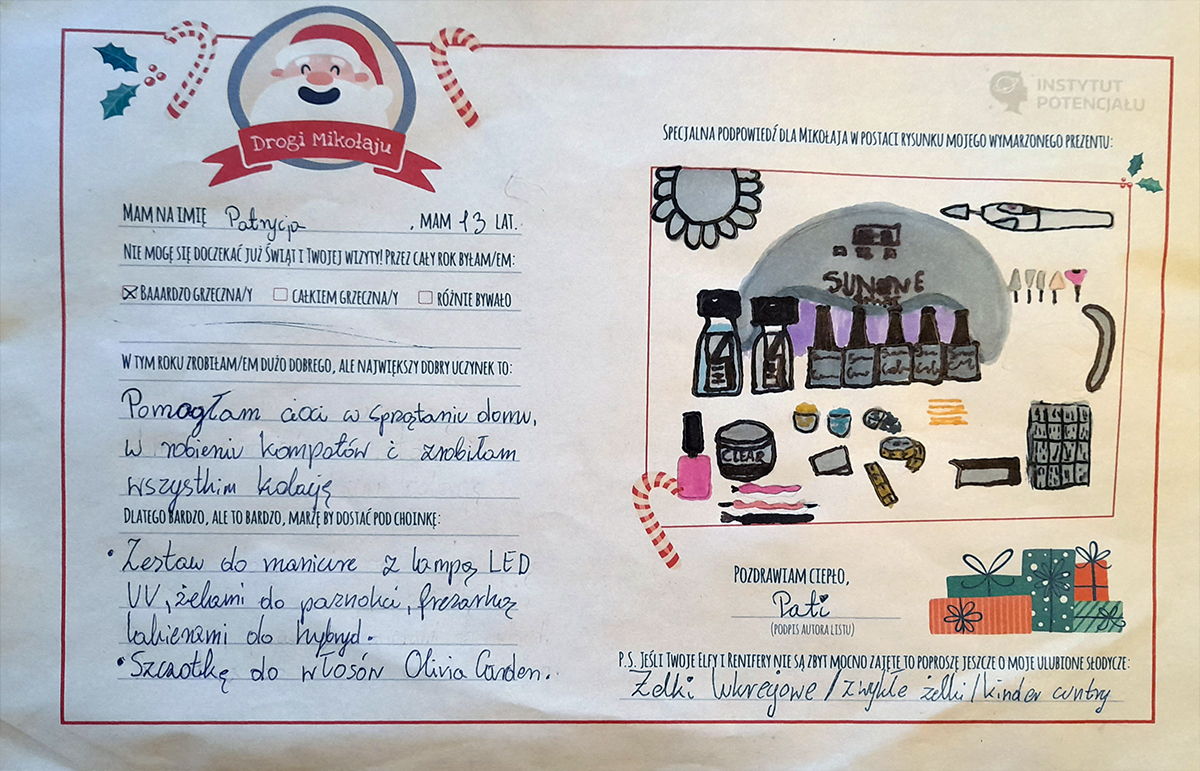 Drogi Mikołaju
MAM NA IMIĘ Patrycja, MAM 13 LAT.
NIE MOGĘ SIĘ DOCZEKAĆ JUŻ ŚWIĄT I TWOJEJ WIZYTY! PRZEZ CAŁY ROK BYŁAM/EM:
BAAARDZO GRZECZNA/Y CAŁKIEM GRZECZNA/Y RÓŻNIE BYWAŁO
W TYM ROKU ZROBIŁAM/EM DUŻO DOBREGO, ALE NAJWIĘKSZY DOBRY UCZYNEK TO:
Pomogłam cioci w sprzątaniu domu,
w robieniu kompotów i zrobiłam
wszystkim kolację
DLATEGO BARDZO, ALE TO BARDZO, MARZĘ BY DOSTAĆ POD CHOINKĘ:
• Zestaw do manicure z lampą LED
UV, żelami do paznokci, frezarką
lakierami do hybryd.
• Szczotkę do włosów Olivia Garden.
INSTYTUT
POTENCJAŁU
SPECJALNA PODPOWIEDŹ DLA MIKOŁAJA W POSTACI RYSUNKU MOJEGO WYMARZONEGO PREZENTU:
SUNONE
CLEAR
POZDRAWIAM CIEPŁO,
Pati
(PODPIS AUTORA LISTU)
P.S. JEŚLI TWOJE ELFY I RENIFERY NIE SĄ ZBYT MOCNO ZAJĘTE TO POPROSZĘ JESZCZE O MOJE ULUBIONE SŁODYCZE:
Żelki lukrecjowe / zwykłe żelki / kinder cuntry